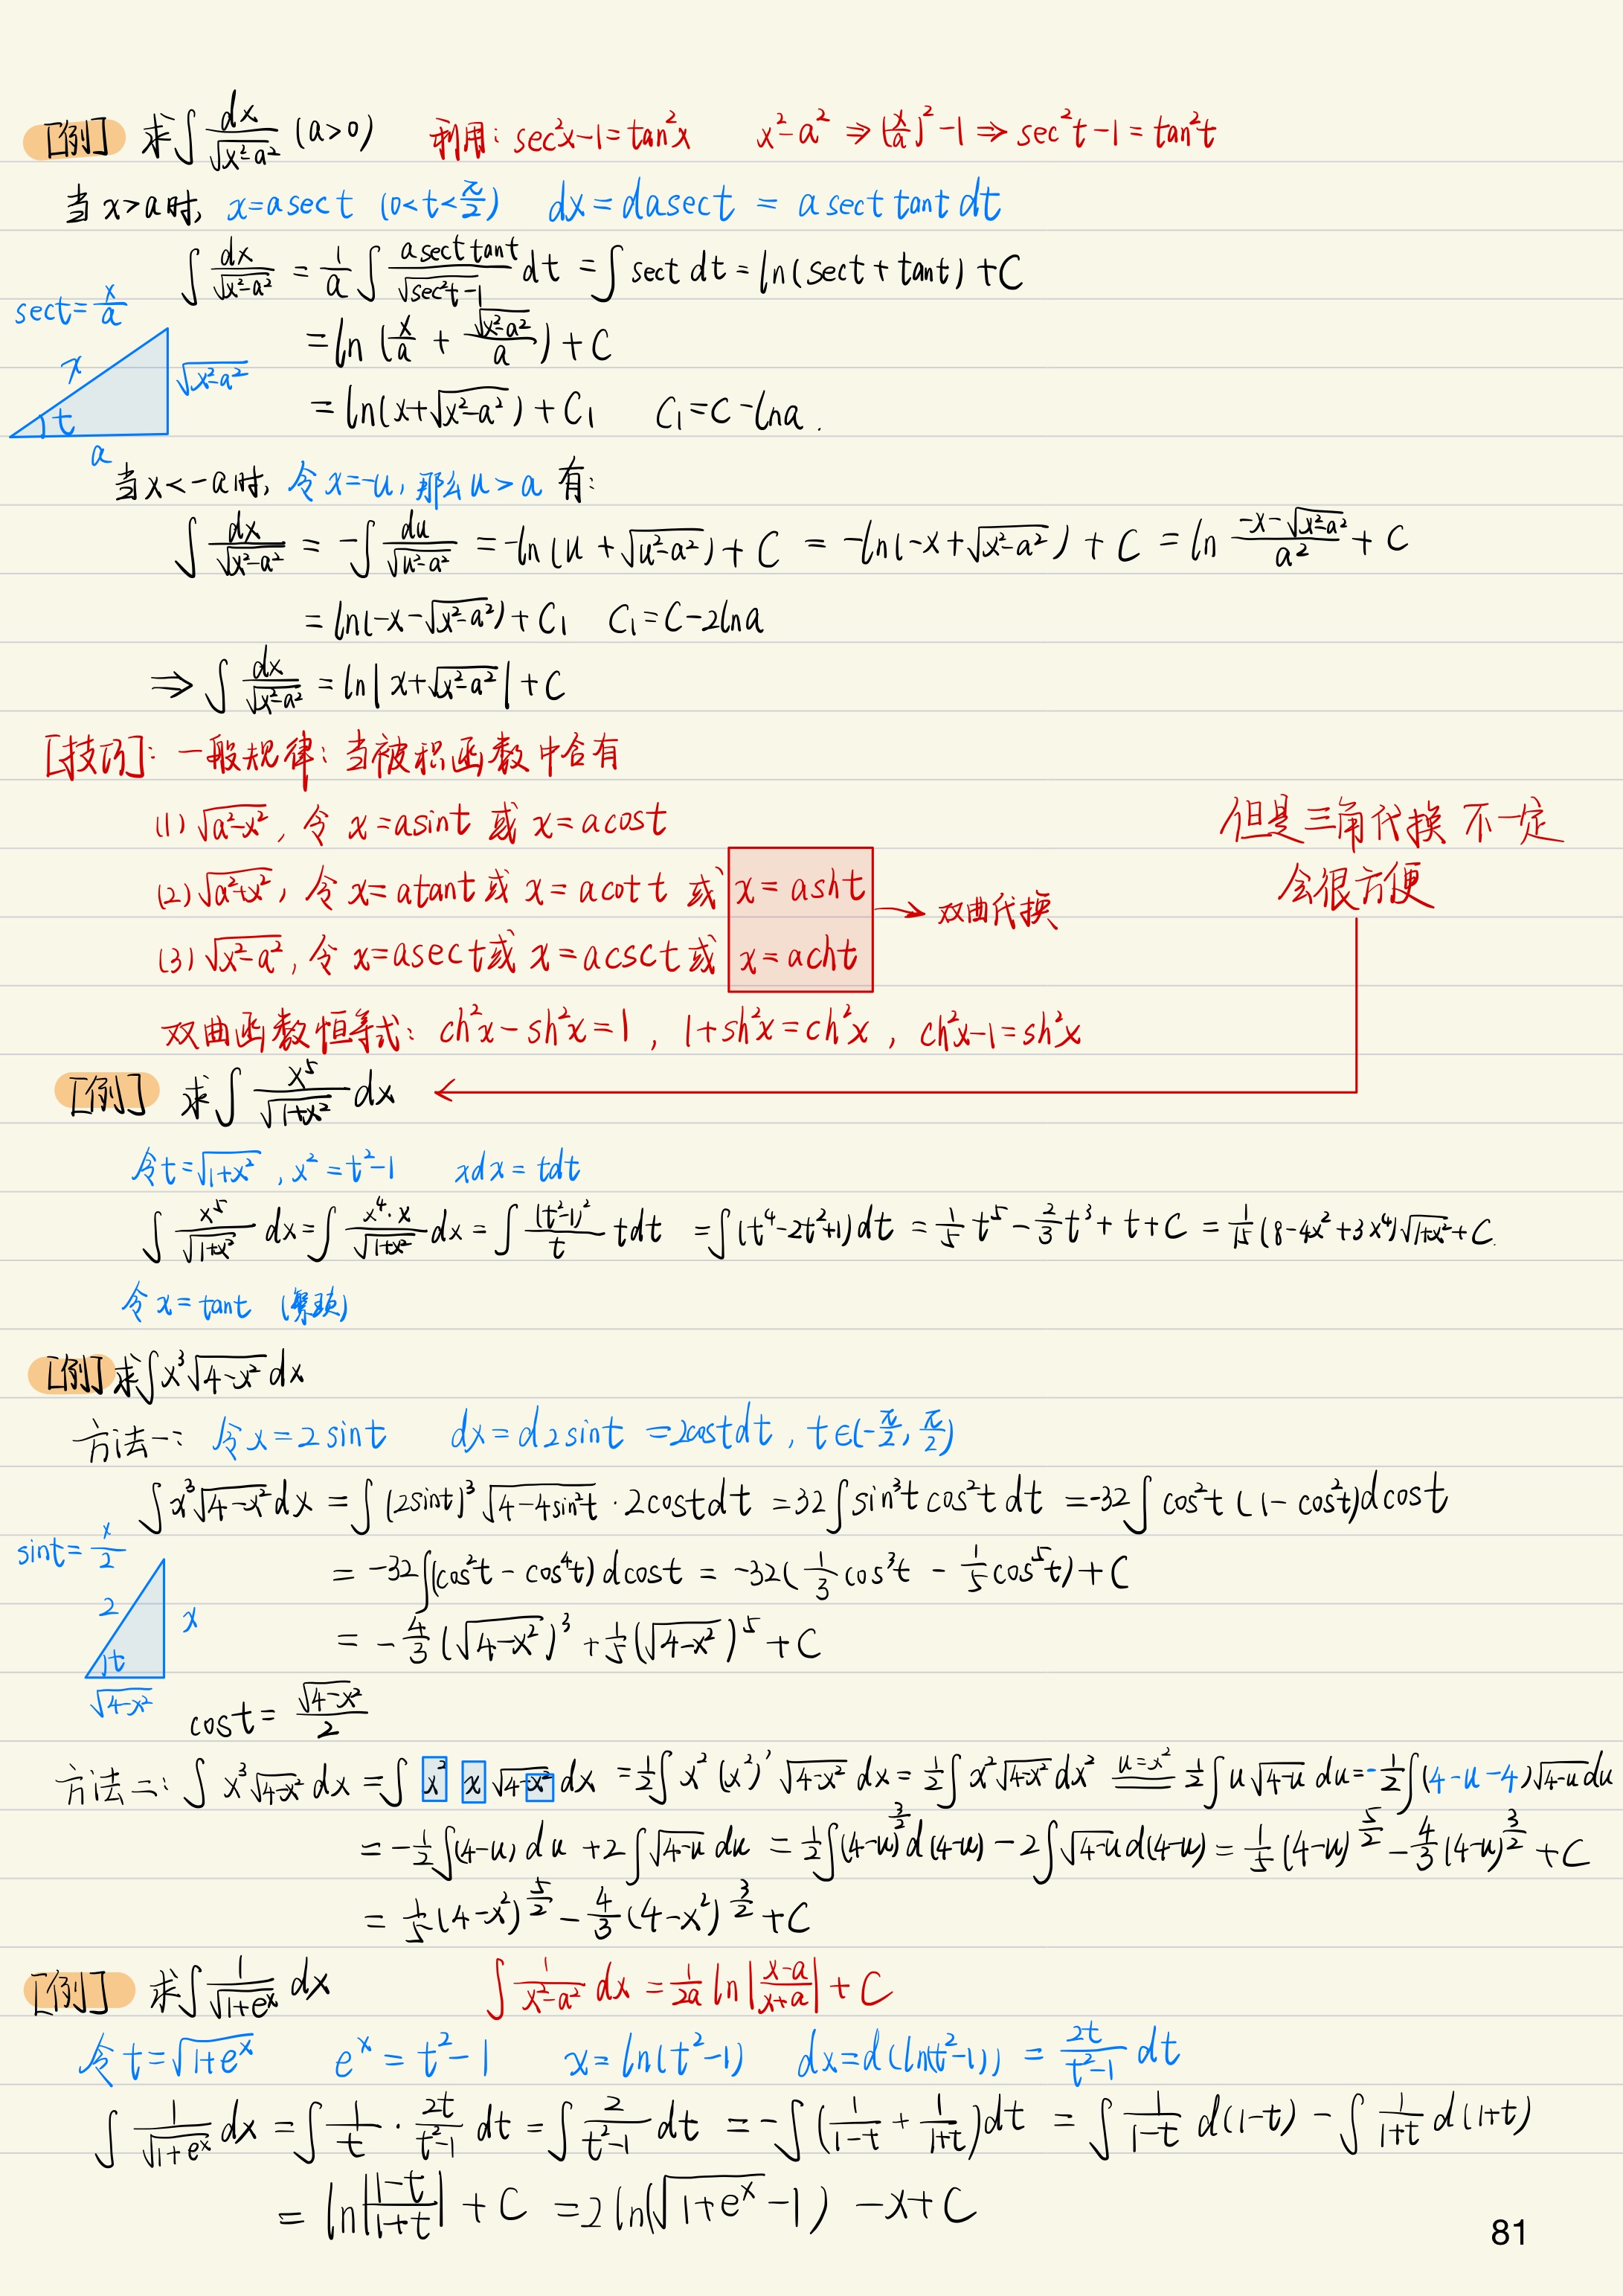 [例] 求∫ dx/√(x²-a²) (a>0)  利用: sec²x-1=tan²x  x²-a² ⇒ (x/a)²-1 ⇒ sec²t-1=tan²t
当x>a时, x=asect (0<t<π/2)  dx=dasect = asect tant dt
∫ dx/√(x²-a²) = 1/a ∫ (asect tant)/√(sec²t-1) dt = ∫sect dt = ln(sect+tant)+C
sect=x/a
= ln(x/a + √(x²-a²)/a)+C
x  √(x²-a²)
= ln(x+√(x²-a²))+C₁  C₁=C-lna.
t
a
当x<-a时, 令x=-u, 那么u>a 有:
∫ dx/√(x²-a²) = -∫ du/√(u²-a²) = -ln(u+√(u²-a²))+C = -ln(-x+√(x²-a²))+C = ln (-x-√(x²-a²))/a² + C
= ln(-x-√(x²-a²))+C₁  C₁=C-2lna
⇒ ∫ dx/√(x²-a²) = ln|x+√(x²-a²)|+C
[技巧]: 一般规律: 当被积函数中含有
(1) √(a²-x²), 令 x=asint 或 x=acost
但是三角代换 不一定
会很方便
(2) √(a²+x²), 令 x=atant 或 x=acott 或 x=asht → 双曲代换
(3) √(x²-a²), 令 x=asect 或 x=acsct 或 x=acht
双曲函数恒等式: ch²x-sh²x=1, 1+sh²x=ch²x, ch²x-1=sh²x
[例] 求∫ x⁵/√(1+x²) dx
令t=√(1+x²), x²=t²-1  xdx=tdt
∫ x⁵/√(1+x²) dx = ∫ (x⁴·x)/√(1+x²) dx = ∫ (t²-1)²/t tdt = ∫(t⁴-2t²+1)dt = 1/5 t⁵ - 2/3 t³ + t + C = 1/15 (8-4x²+3x⁴)√(1+x²)+C.
令x=tant
[例] 求∫x³√(4-x²) dx
方法一: 令x=2sint  dx=d2sint=2costdt, t∈(-π/2, π/2)
∫x³√(4-x²)dx = ∫(2sint)³√(4-4sin²t)·2costdt = 32∫sin³t cos²t dt = -32∫cos²t(1-cos²t)dcost
sint=x/2
= -32∫(cos²t-cos⁴t)dcost = -32(1/3 cos³t - 1/5 cos⁵t)+C
2  x
= -4/3(√(4-x²))³+1/5(√(4-x²))⁵+C
t
√(4-x²)
cost=√(4-x²)/2
方法二: ∫x³√(4-x²) dx = ∫x² x √(4-x²) dx = 1/2∫x²(x²)'√(4-x²) dx = 1/2∫x²√(4-x²)dx² u=x² 1/2∫u√(4-u) du = -1/2∫(4-u-4)√(4-u)du
= -1/2∫(4-u)du+2∫√(4-u) du = 1/2∫(4-u)^(3/2)d(4-u)-2∫√(4-u)d(4-u) = 1/5(4-u)^(5/2)-4/3(4-u)^(3/2)+C
= 1/5(4-x²)^(5/2)-4/3(4-x²)^(3/2)+C
[例] 求∫ 1/√(1+eˣ) dx  ∫ 1/(x²-a²) dx = 1/2a ln|(x-a)/(x+a)|+C
令t=√(1+eˣ)  eˣ=t²-1  x=ln(t²-1)  dx=d(ln(t²-1)) = 2t/(t²-1) dt
∫ 1/√(1+eˣ) dx = ∫ 1/t · 2t/(t²-1) dt = ∫ 2/(t²-1) dt = -∫(1/(1-t)+1/(1+t))dt = ∫ 1/(1-t) d(1-t) - ∫ 1/(1+t) d(1+t)
= ln|(1-t)/(1+t)|+C = 2ln(√(1+eˣ)-1)-x+C
81